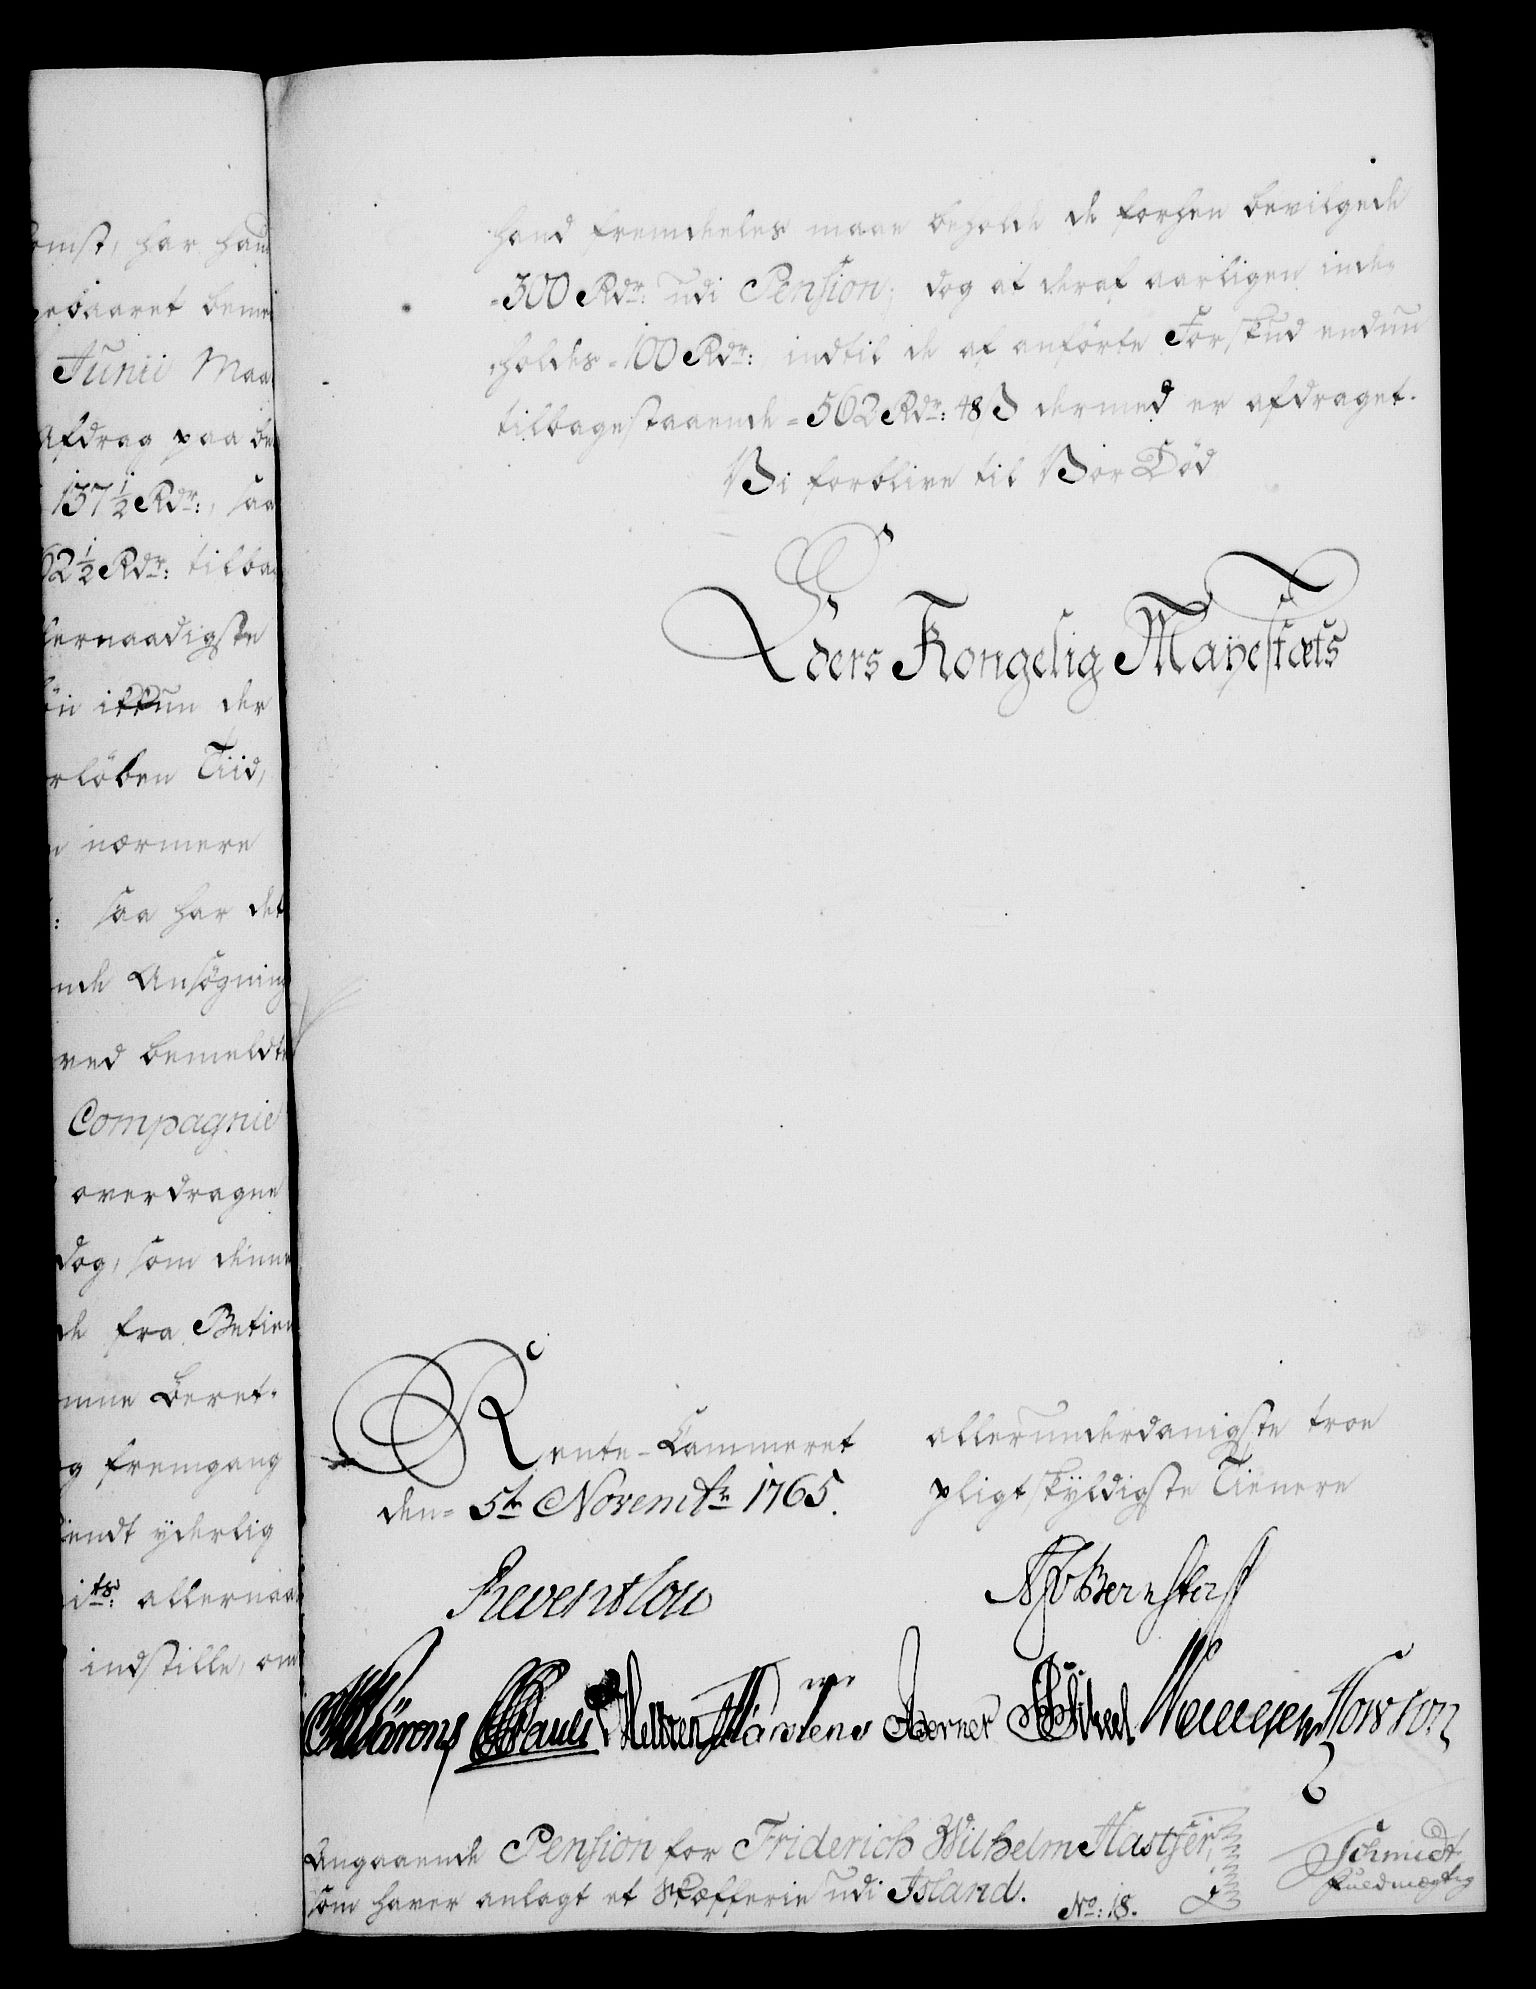 omst, har hand
gebaaret bemel
Junii Maa
Afdrag paa be
137½ Rdr:, saa
62½ Rdr: tilba
lernaadigste
öii ikkun der
orlöben Tiid,
nærmere
: saa har det
nde Ansøgning
ved bemeldte
Compagnie
overdragne
dog, som denne
de fra Betien
mme Beret-
g fremgang
iendt yderlig
its: allernaa
indstille, om
hand fremdeeles maae beholde de forhen bevilgede
-300 Rdr: udi Pension; dog at deraf aarligen inde-
holdes -100 Rdr: indtil de af anförte Forskud endnu
tilbagestaaende -562 Rdr: 48 β dermed er afdraget.
Vi forblive til Vor Død
Eders Kongelig Mayestæts
Rente-Cammeret
den- 5te Novembr 1765.
allerunderdanigste troe
pligtskyldigste Tienere
Reventlou
Bernstorff
Angaaende Pension for Friderich Wilhelm Hastfer,
som haver anlagt et Skæfferie udi Island.
No: 18.
Schmidt
Fuldmægtig